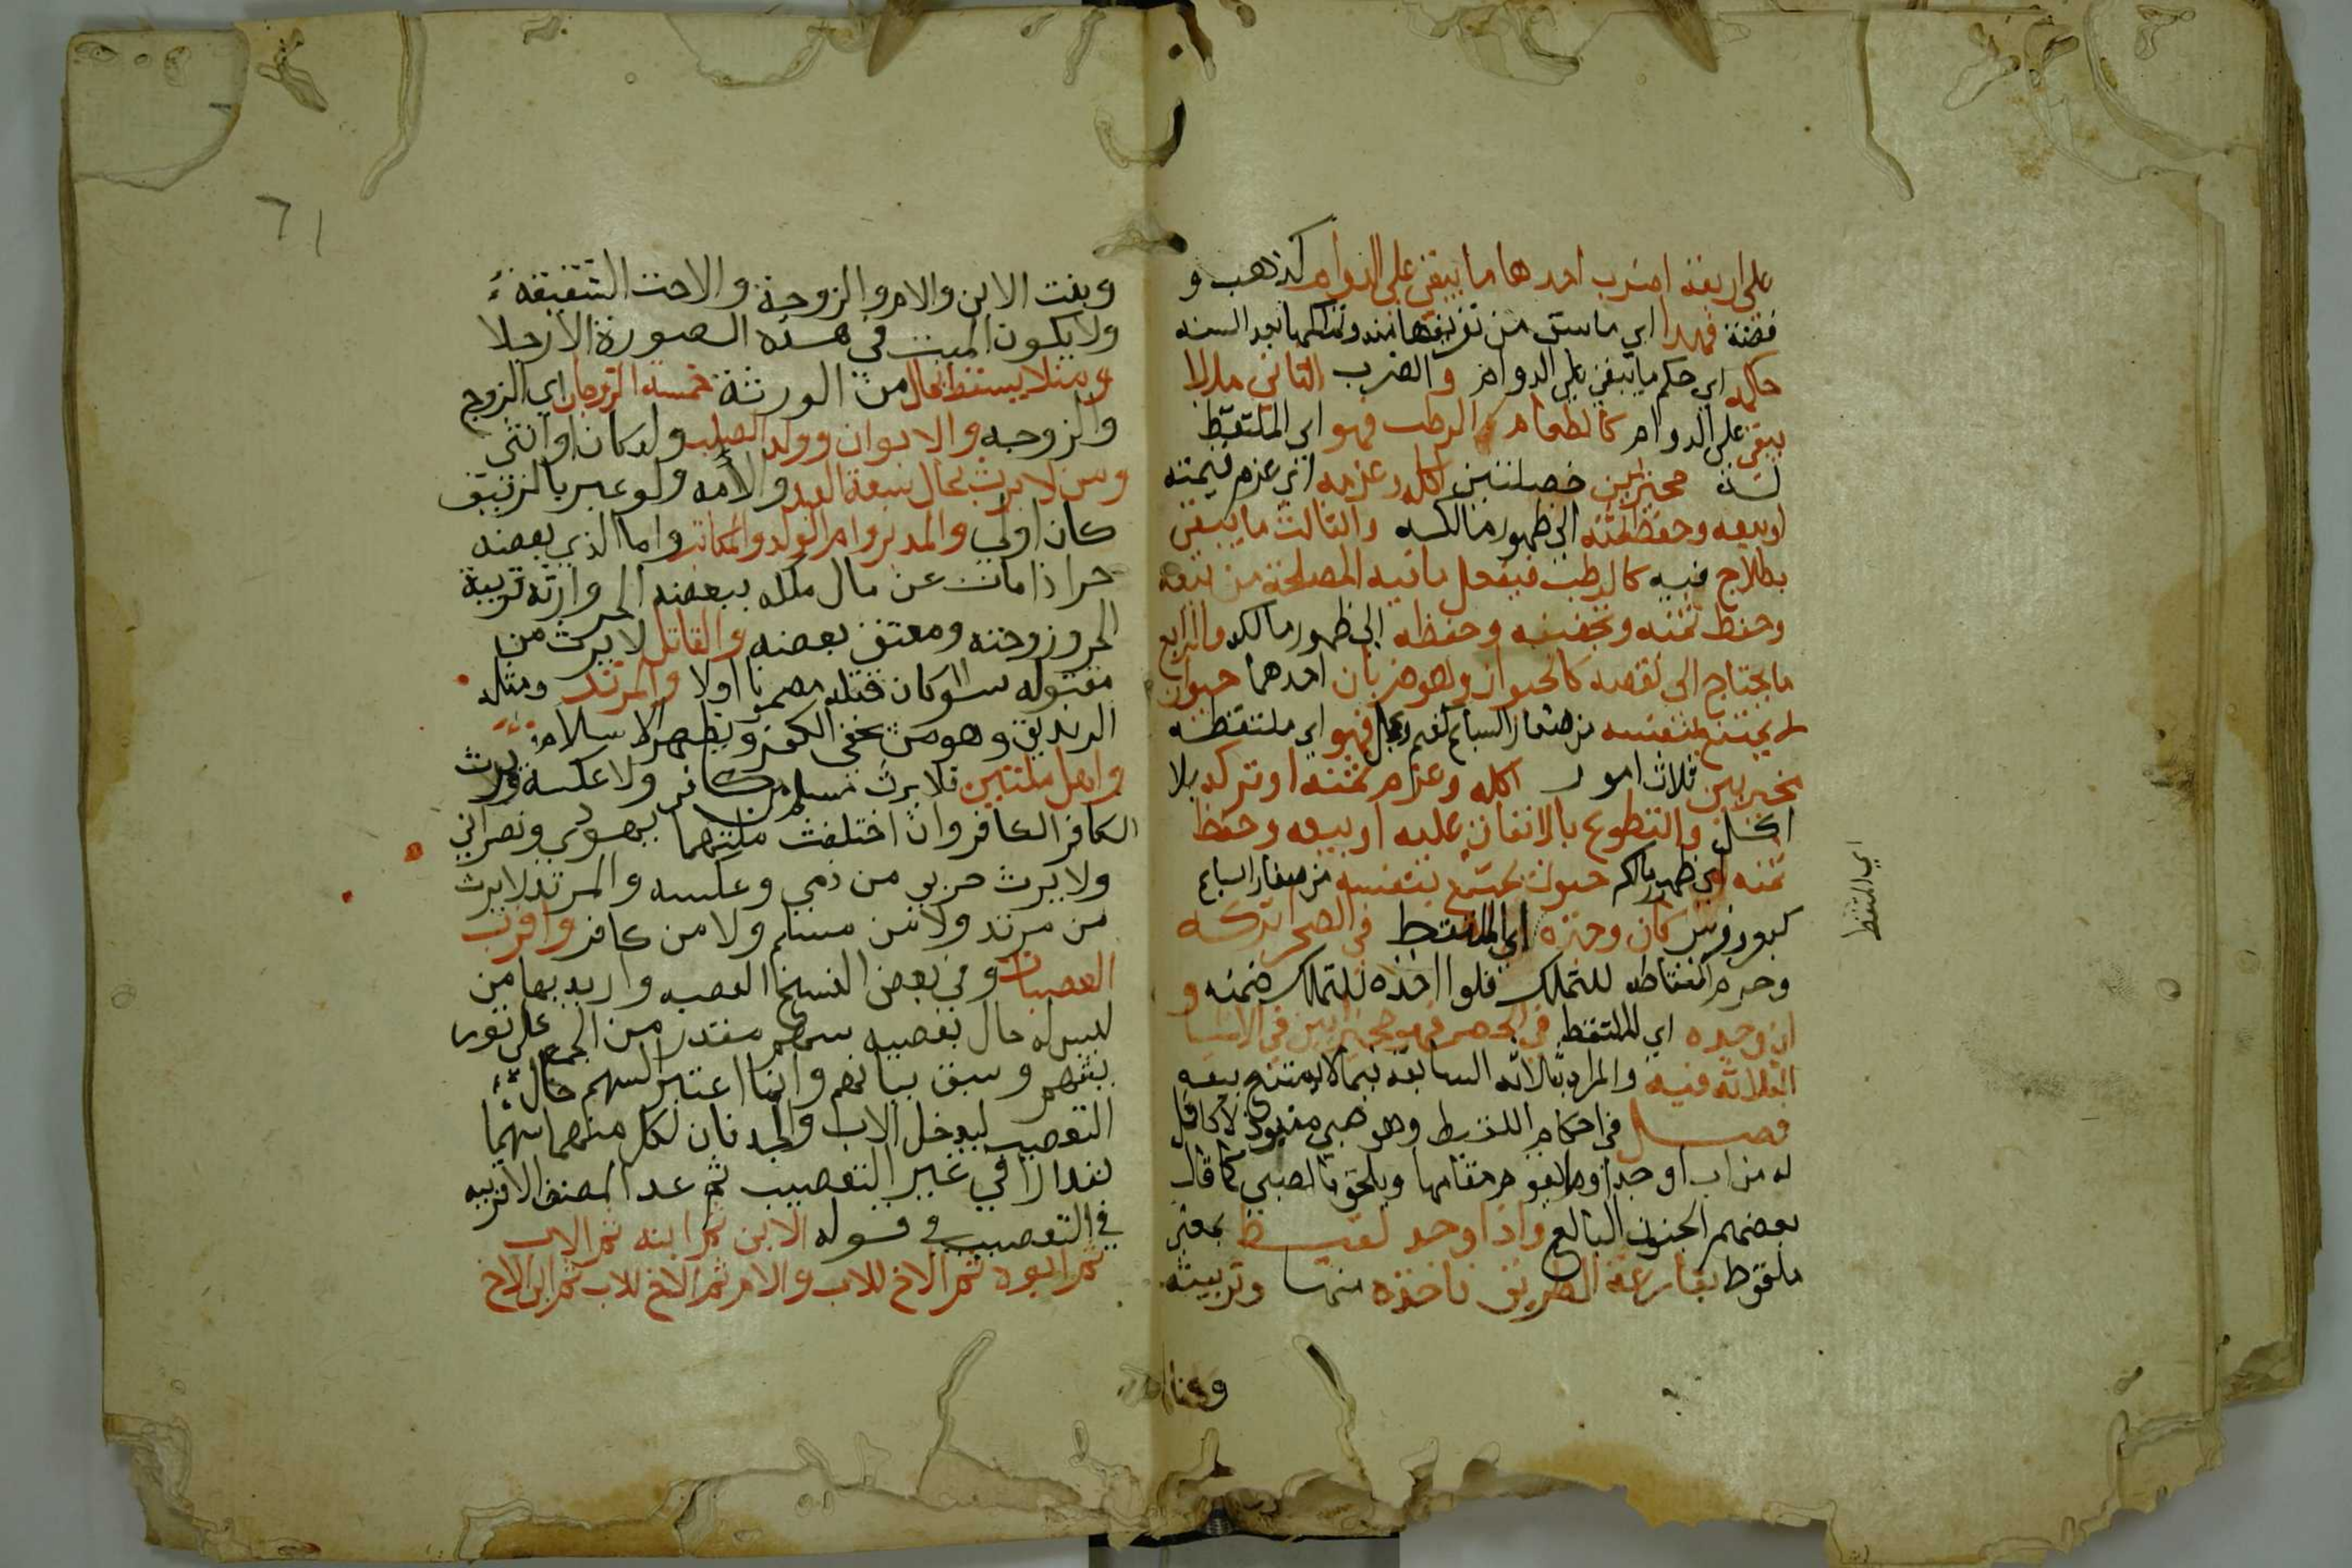 على اربعة اضرب احدها ما يبقى على الدوام كذهب و
فضة فهذا اي ما سبق من تعريفها سنة وتملكها بعد السنه
حكمه اي حكم ما يبقى على الدوام والضرب الثاني ما لا
يبقى على الدوام كالطعام الرطب فهو اي الملتقط
له مخير بين خصلتين اكله وغرمه اي غرم قيمته
او بيعه وحفظ ثمنه الى ظهور مالكه والثالث ما يبقى
بعلاج فيه كالرطب فيفعل ما فيه المصلحة من بيعه
وحفظ ثمنه وتجفيفه وحفظه الى ظهور مالكه والرابع
ما يحتاج الى نفقه كالحيوان وهو ضربان احدهما حيوان
لا يمتنع بنفسه من صغار السباع كغنم وعجل فهو اي ملتقطه
مخير بين ثلاث امور اكله وغرم ثمنه او تركه بلا
اكل والتطوع بالانفاق عليه او بيعه وحفظ
ثمنه الى ظهور مالكه حيوان يمتنع بنفسه من صغار السباع
كبعير وفرس كان وجده اي الملتقط في الصحرا تركه
وحرم التقاطه للتملك فلو اخذه للتملك ضمنه و
ان وجده اي الملتقط في الحضر فهو مخير بين الاشيا
الثلاثة فيه والمراد بالثلاثه السابقة فيما لا يمتنع بيعه
فصل في احكام اللقيط وهو صبي منبوذ لا كافل
له من اب او جد او ما يقوم مقامهما ويلحق بالصبي كما قال
بعضهم المجنون البالغ واذا وجد لقيط بمعنى
ملقوط بقارعة الطريق فاخذه منها وتربيته
اي الملتقط
٦١
وبنت الابن والام والزوجة والاخت الشقيقة
ولا يكون الميت في هذه الصورة الا رجلا
ومن لا يسقط بحال من الورثة خمسة الزوجان اي الزوج
والزوجه والابوان وولد الصلب ولد كان او انثى
ومن لا يرث بحال سبعة العبد والامه ولو عبر بالرقيق
كان اولى والمدبر وام الولد والمكاتب واما الذي بعضه
حر اذا مات عن مال ملكه ببعضه الحر وارثه قريبه
الحر وزوجته ومعتق بعضه والقاتل لا يرث من
مقتوله سواكان قتله مضمونا اولا والمرتد ومثله
الزنديق وهو من يخفي الكفر ويظهر الاسلام
واهل ملتين فلا يرث مسلم من كافر ولا عكسه ويرث
الكافر الكافر وان اختلفت ملتهما كيهودي ونصراني
ولا يرث حربي من ذمي وعكسه والمرتد لا يرث
من مرتد ولا من مسلم ولا من كافر واقرب
العصبات وفي بعض النسخ العصبه واريد بها من
ليس له حال تعصيبه سهم مقدر من المجمع على تور
يثهم وسبق بيانهم وانما اعتبر السهم حال
التعصيب ليدخل الاب والجد فان لكل منهما سهما
مقدارا في غير التعصيب ثم عد المصنف الاقربيه
في التعصيب في قوله الابن ثم ابنه ثم الاب
ثم ابوه ثم الاخ للاب والام ثم الاخ للاب ثم ابن الاخ